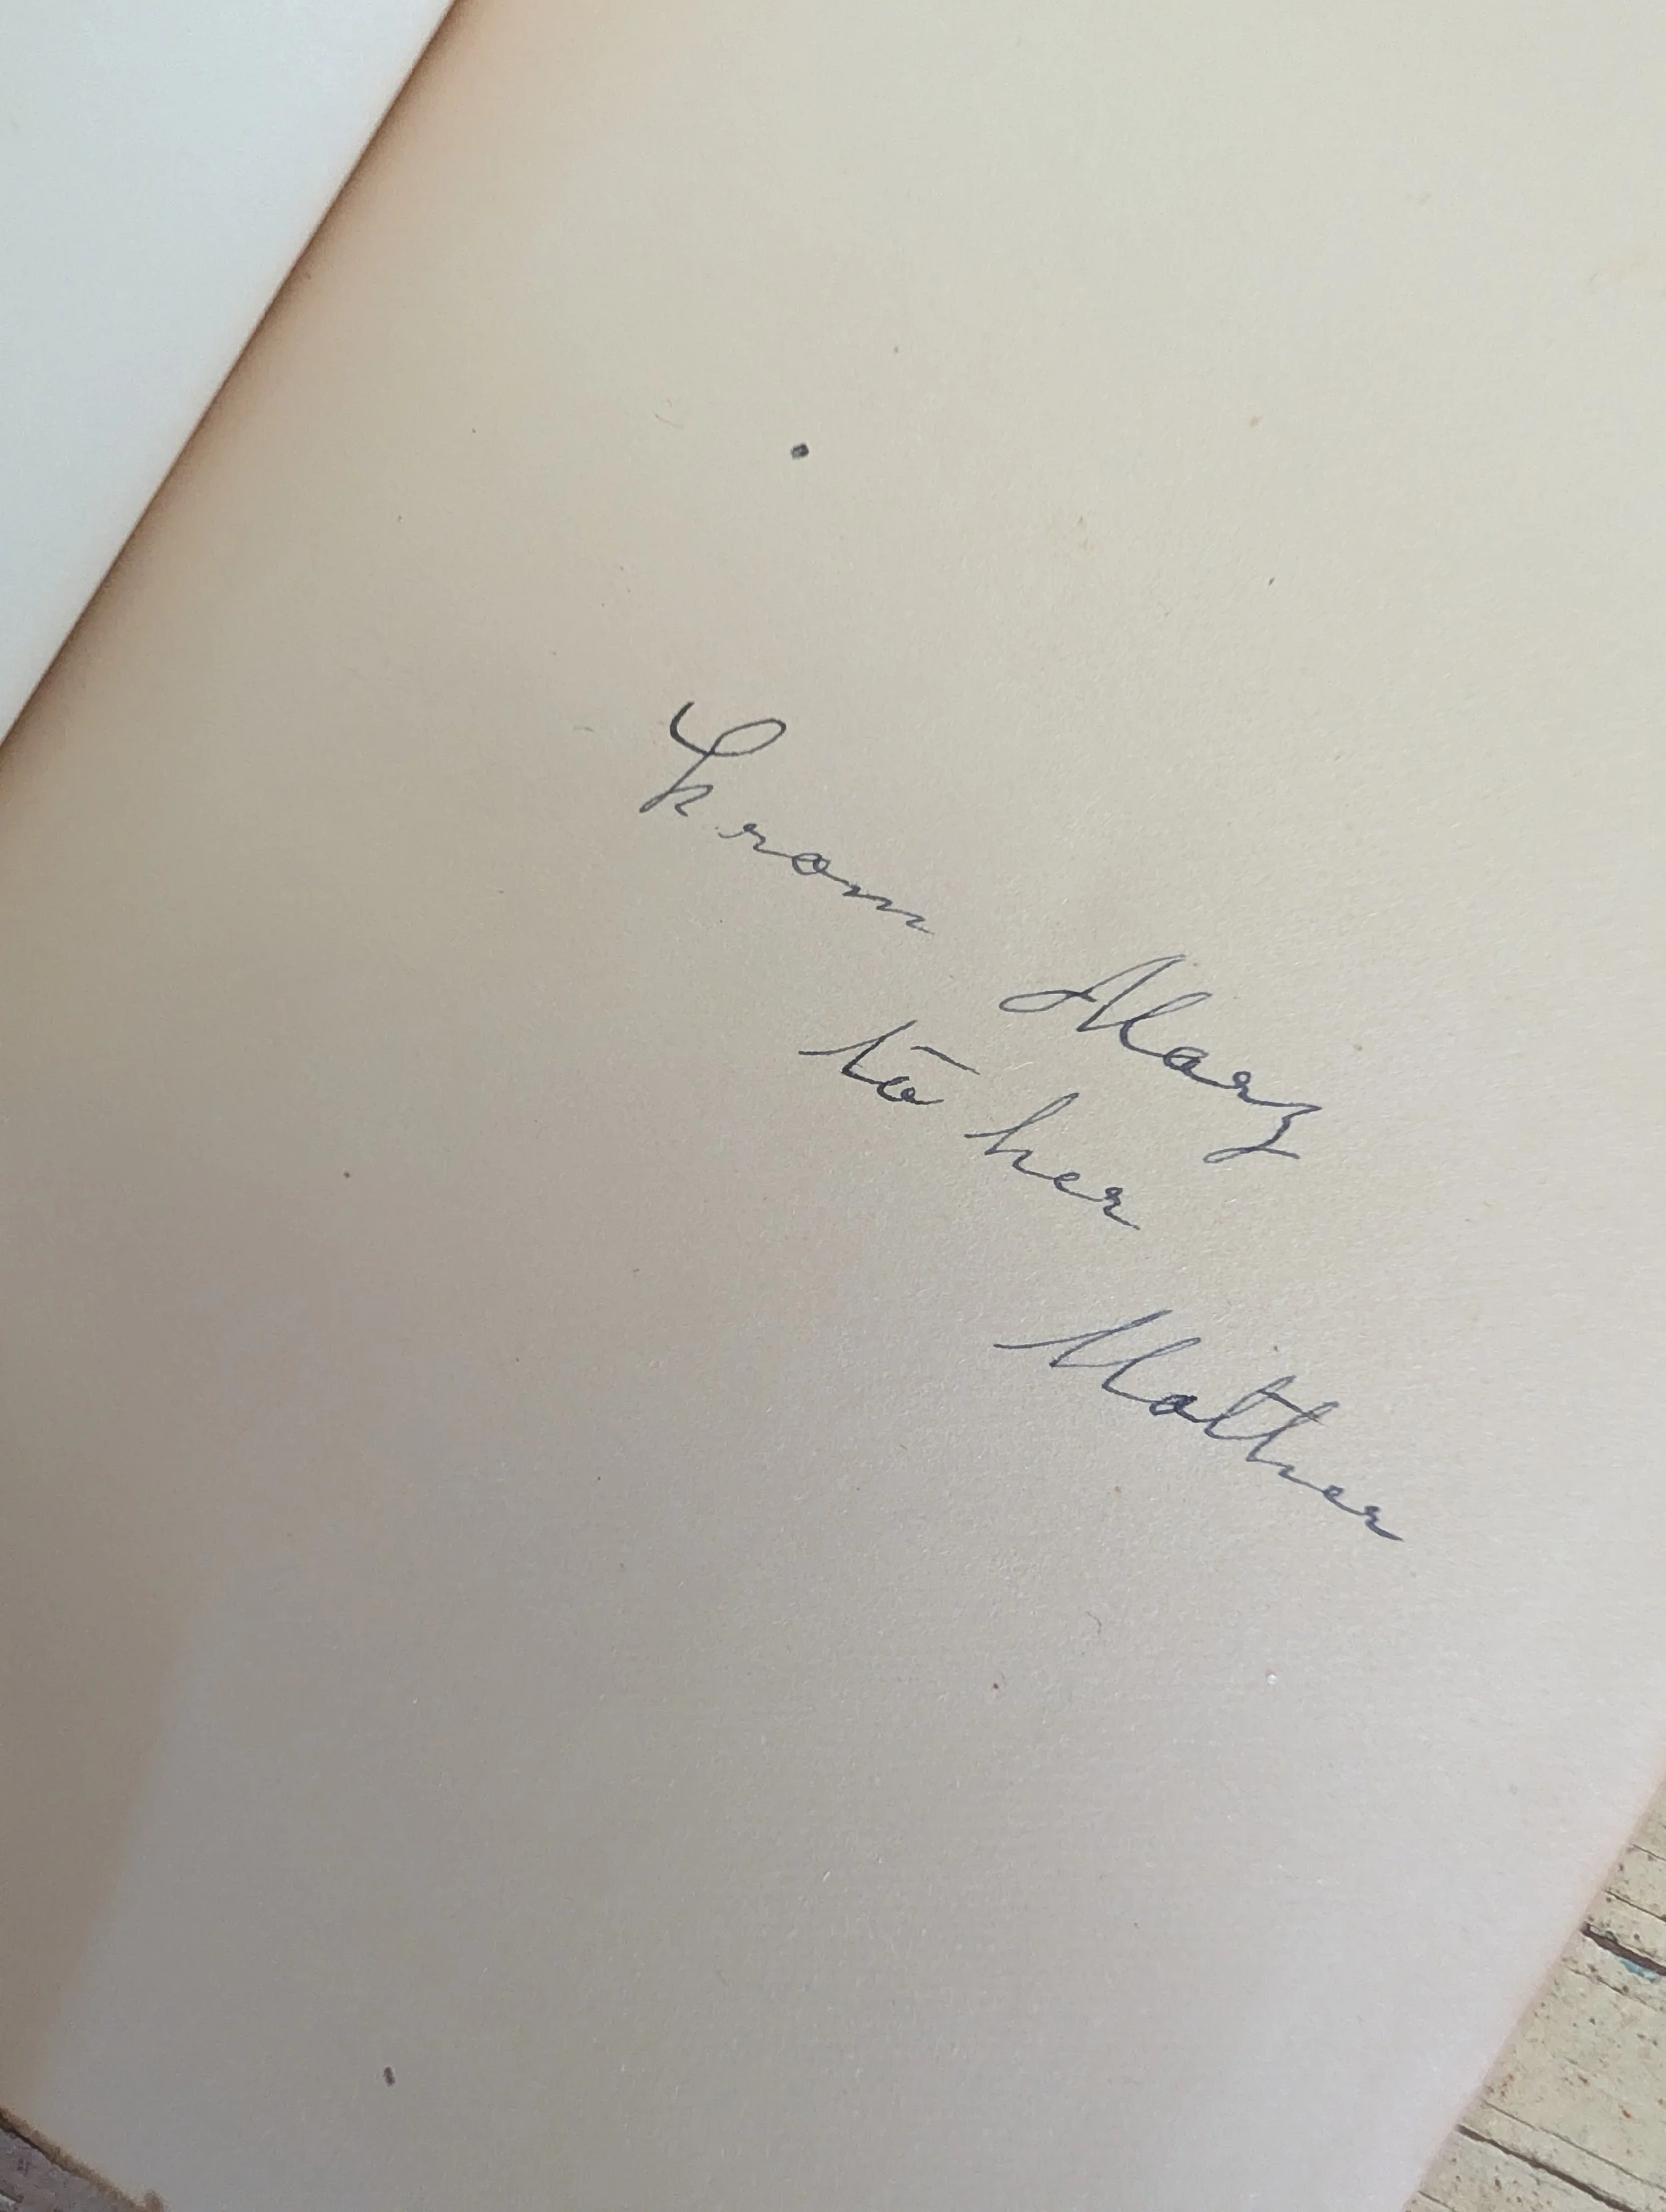 From Mary
to her
Mother